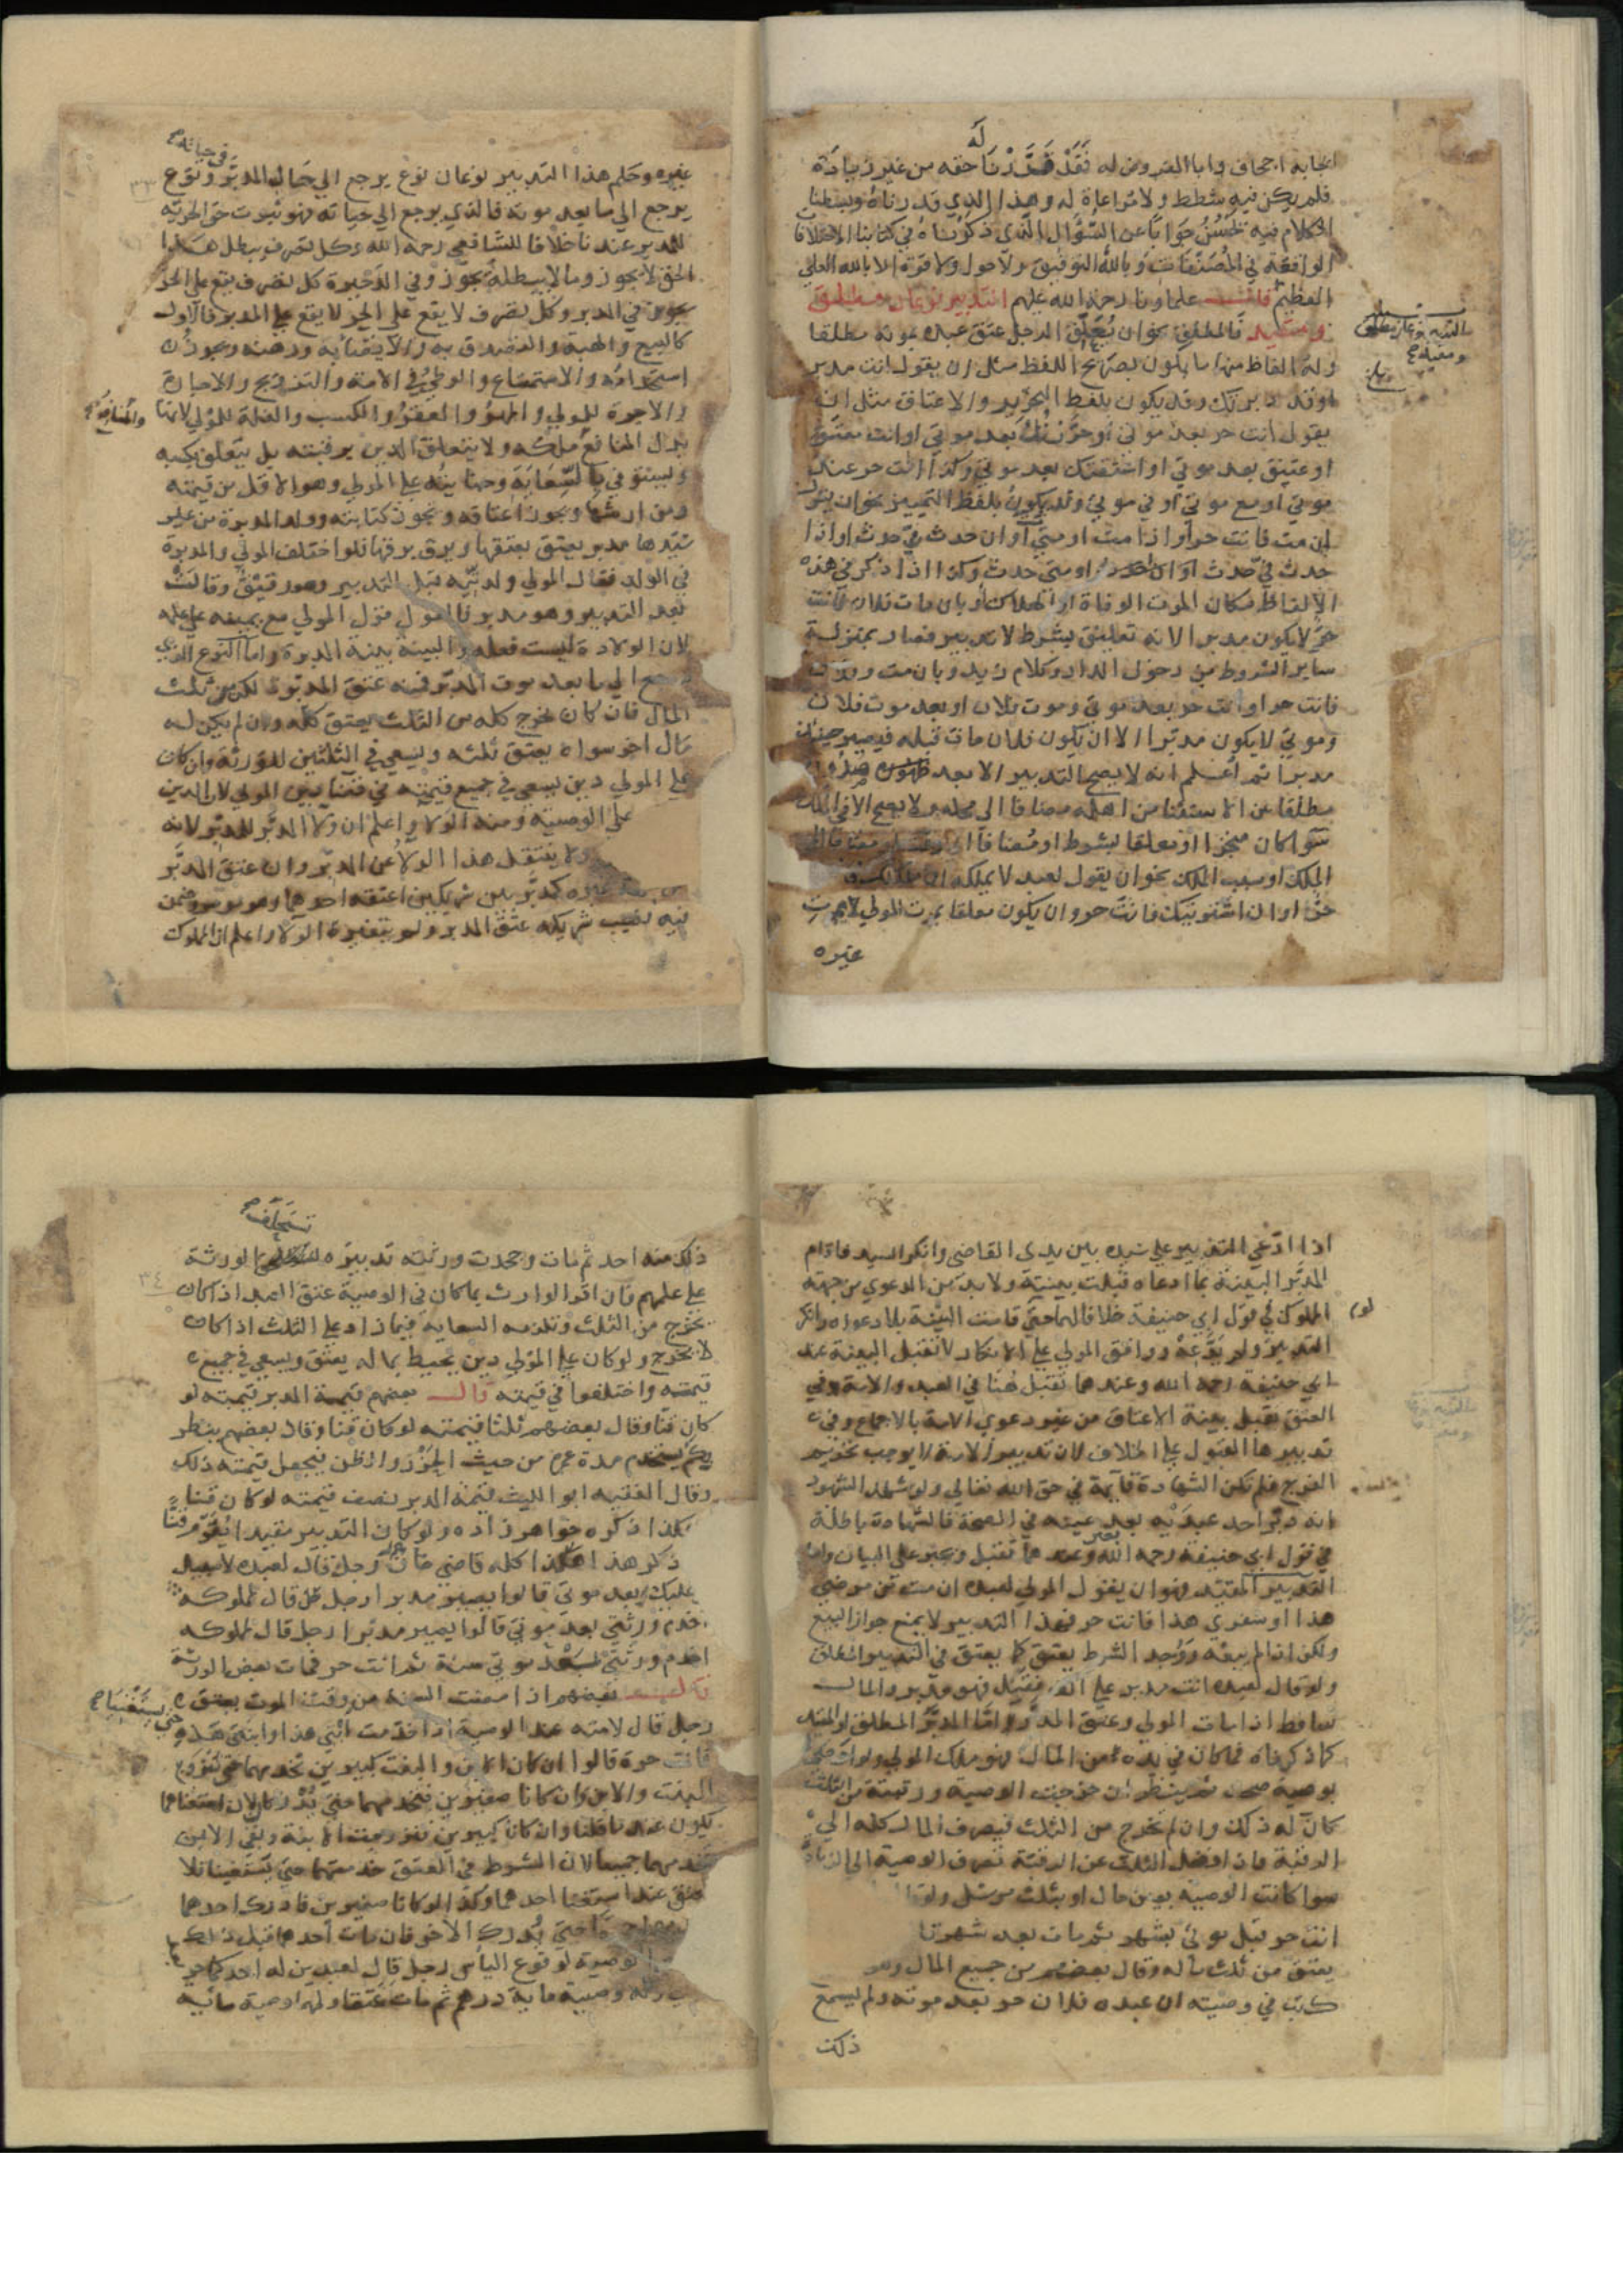 له
اجحاف واباالمفروض له فقد قدرنا حقه من غير زيادة
فلم يكن فيه شطط ولا مراعاة له وهذا الذي قدرناه وبسطنا
الكلام فيه جوابا عن السؤال الذي ذكرناه في كتابنا الاختلافات
الواقعة في المصنفات وبالله التوفيق ولاحول ولا قوة الا بالله العلي
العظيم قالت علماونا رحمة الله عليهم التدبير نوعان مطلق
ومقيد فالمطلق نحو ان يعلق الرجل عتق عبده بموته مطلقا
وله الفاظ منها ما يكون بصريح اللفظ مثل ان يقول انت مدبر
اوقد دبرتك وقد يكون بلفظ التحرير والاعتاق مثل ان
يقول انت حر بعد موتي او حررتك بعد موتي او انت معتق
او عتيق بعد موتي او اعتقتك بعد موتي وكذا انت حر عند
موتي او مع موتي او في موتي وقد يكون بلفظ التمييز نحو ان يقول
ان مت فانت حر او اذا مت او متي او ان حدث بي حدث او اذا
حدث بي حدث او متى حدث وكذا اذا ذكر في هذه
الالفاظ مكان الموت الوفاة او الهلاك او بان مات فلان فانت
حر لايكون مدبرا لانه تعليق بشرط لاتدبير فصار بمنزلة
ساير الشروط من دخول الدار وكلام زيد وبان مت وفلان
فانت حر او انت حر بعد موتي وموت فلان او بعد موت فلان
وموتي لايكون مدبرا الا ان يكون فلان مات قبله فيصير حينئذ
مدبرا ثم اعلم انه لايصح التدبير الا بعد
مطلقا عن الاستثنا من اهله مضافا الى محله ولا يصح الا في الملك
سوا كان منجزا او معلقا بشرط او مضافا الى مضافا الى
الملك او سبب الملك نحو ان يقول لعبد لا يملكه ان ملكتك فانت
حر او ان اشتريتك فانت حر وان يكون معلقا بموت المولي لابموت
غيره
التدبير نوعان مطلق
ومقيد
في حياته
غيره وحكم هذا التدبير نوعان نوع يرجع الي حال المدبر ونوع
يرجع الي ما بعد موته فالذي يرجع الي حياته فهو ثبوت حق الحرية
للمدبر عندنا خلافا للشافعي رحمه الله وكل تصرف يبطل هذا
الحق لايجوز وما لايبطله يجوز وفي الذخيرة كل تصرف يقع على الحر
يجوز في المدبر وكل تصرف لا يقع على الحر لا يقع على المدبر فالاول
كالبيع والهبة والتصدق به والايفاء به ورهنه ويجوز
استخدامه والاستمتاع والوطي في الامة والتزويج والاجارة
والاجرة للمولي والمهر والعقر والكسب والغلة للمولي لانها
والمنافع
بدل المنافع ملكه ولا يتعلق الدين برقبته بل يتعلق بكسبه
ويستوفي بالسعاية وجنايته على المولي وهو الاقل من قيمته
ومن ارشها ويجوز اعتاقه وتجوز كتابته وولد المدبرة من غير
سيدها مدبر يعتق بعتقها ويرق برقها فلو اختلف المولي والمدبرة
في الولد فقال المولي ولدتيه قبل التدبير وهو رقيق وقالت
بعد التدبير وهو مدبر فالقول قول المولي مع يمينه على علمه
لان الولادة ليست فعله والبينة بينة المدبرة واما النوع الذي
يرجع الي ما بعد موت المدبر فيه عتق المدبر لكن من ثلث
المال فان كان يخرج كله من الثلث يعتق كله وان لم يكن له
مال اخر سواه يعتق ثلثه ويسعي في الثلثين للورثة وان كان
على المولي دين يسعي في جميع قيمته لان الدين
على الوصية ومنه الولا واعلم ان ولا المدبر للمدبر لانه
ولا ينتقل هذا الولا عن المدبر وان عتق المدبر
غيره كمدبر بين شريكين اعتقه احدهما وهو موسر ضمن
فيه نصيب شريكه عتق المدبر ولم يتغير الولا واعلم ان المملوك
اذا ادعي التدبير على سيده بين يدي القاضي وانكر السيد فاقام
المدبر البينة بما ادعاه قبلت بينته ولابد من الدعوي من جهة
المملوك في قول ابي حنيفة خلافا لهما حتى قامت البينة بلا دعواه وانكر
لو
التدبير ولم يدعه ووافق المولي على الانكار لاتقبل البينة عند
ابي حنيفة رحمه الله وعندهما تقبل هنا في العبد والامة وفي
العتق تقبل بينة الاعتاق من غير دعوي الامة بالاجماع وفي
تدبيرها القبول على الخلاف لان تدبير الامة لايوجب تحريم
الفرج فلم تكن الشهادة قايمة في حق الله تعالي ولو شهد الشهود
انه دبر احد عبديه بعد عينه في الصحة فالشهادة باطلة
في قول ابي حنيفة رحمه الله وعندهما تقبل ويجبر على البيان واما
التدبير المقيد فهو ان يقول المولي لعبده ان مت من مرضي
هذا او سفري هذا فانت حر فهذا التدبير لايمنع جواز البيع
ولكن اذا لم يبعه ووجد الشرط يعتق كما يعتق في التدبير المطلق
ولو قال لعبده انت مدبر على الف فقبل فهو مدبر والمال
ساقط اذا مات المولي وعتق المدبر واما المدبر المطلق او المقيد
كما ذكرناه فما كان في يده من المال فهو ملك المولي ولو
بوصية صحت ثم ينظر ان خرجت الوصية ورقبته من الثلث
كان له ذلك وان لم تخرج من الثلث فيصرف المال كله الي
الرقبة فان افضل الثلث عن الرقبة تصرف الوصية الي الزيادة
سوا كانت الوصية بعين مال او بثلث مرسل ولو
انت حر قبل موتي بشهر ثم مات بعد شهر
يعتق من ثلث ماله وقال بعضهم من جميع المال ولو
كتب في وصيته ان عبده فلان حر بعد موته ولم يسمع
ذلك
تستحلف
ذلك منه احد ثم مات وجحدت ورثته تدبيره الورثة
على علمهم فان اقر الوارث بما كان في الوصية عتق العبد اذا كان
٣٤
يخرج من الثلث وتلزمه السعاية فيما زاد على الثلث اذا كان
لايخرج ولو كان على المولي دين يحيط بماله يعتق ويسعي في جميع
قيمته واختلفوا في قيمته قال بعضهم قيمة المدبر قيمته لو
كان قنا وقال بعضهم ثلثا قيمته لو كان قنا وقال بعضهم ينظر
بكم يستخدم مدة عمره من حيث الحزر والظن فيجعل قيمته ذلك
وقال الفقيه ابو الليث قيمة المدبر نصف قيمته لو كان قنا
هكذا ذكره خواهر زاده ولو كان التدبير مقيدا يقوم قنا
ذكر هذا هكذا كله قاضي خان رجل قال لعبده لاسبيل
عليك بعد موتي قالوا يصير مدبرا رجل قال لمملوكه
اخدم ورثتي بعد موتي قالوا يصير مدبرا رجل قال لمملوكه
اخدم ورثتي بعد موتي سنة ثم انت حر فمات بعض الورثة
قال بعضهم اذا مضت السنة من وقت الموت يعتق
رجل قال لامته عند الوصية اذا خدمت ابني هذا وابنتي هذه حتى يستغنيا
فانت حرة قالوا ان كان الابن والبنت كبيرين تخدمهما حتى تتزوج
البنت والابن وان كانا صغيرين تخدمهما حتى يدركا لان استغناهما
يكون عند ما قلنا وان كانا كبيرين فتزوجت الابنة وبقي الابن
تخدمهما جميعا لان الشرط في العتق خدمتهما حتى يستغنيا فلا
عتق عند استغنا احدهما وكذا لو كانا صغيرين فادرك احدهما
حتى يدرك الاخر فان مات احدهما قبل ذلك
الوصية لوقوع الياس رجل قال لعبدين له احدكما حر
وله وصية ماية درهم ثم مات عتقا ولهما وصية ماية